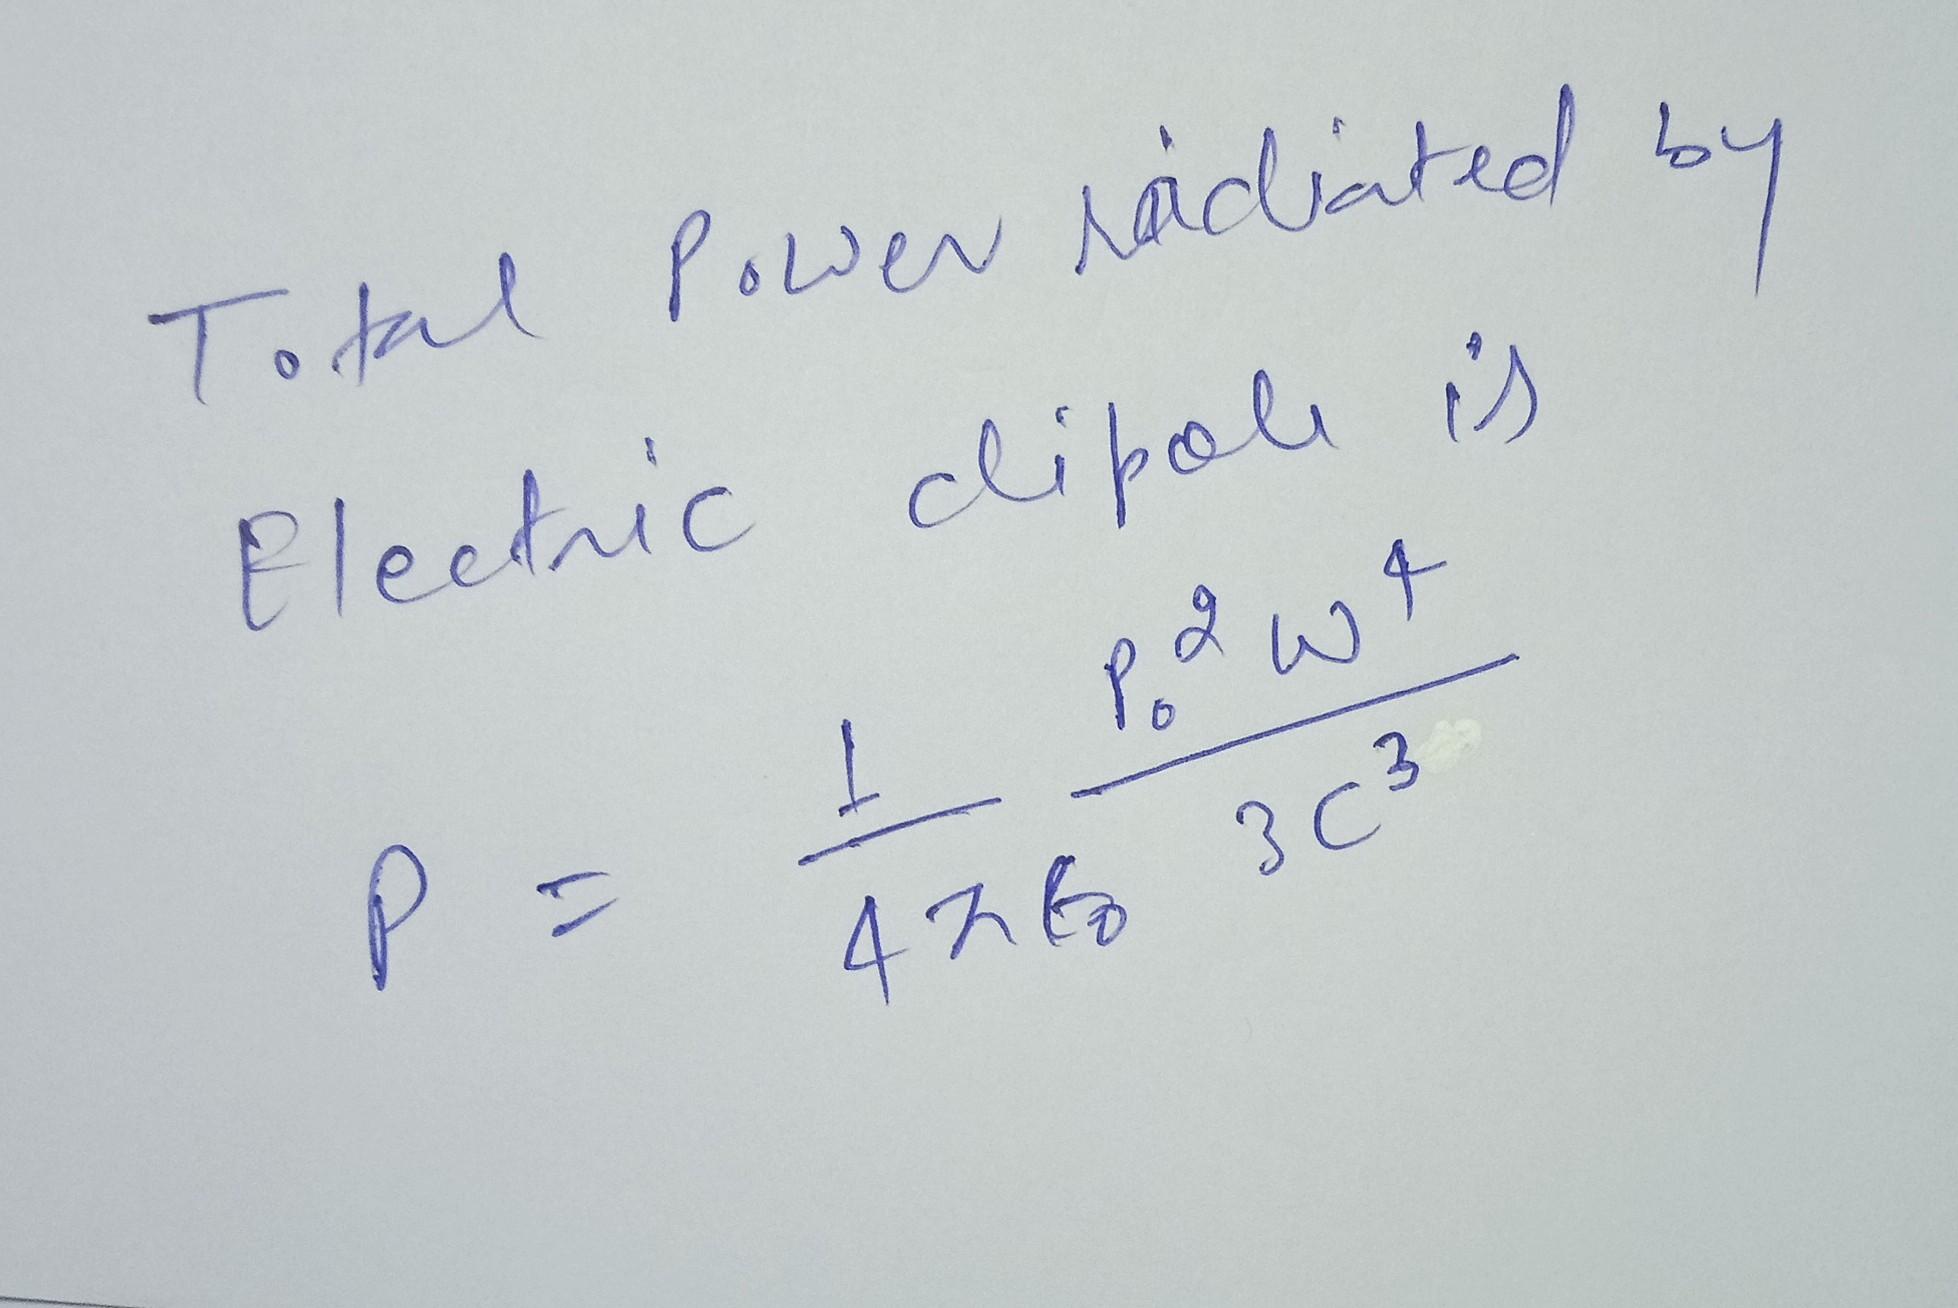 Total Power radiated by
Electric dipole is
P = 1/4πε₀ P₀²ω⁴/3C³